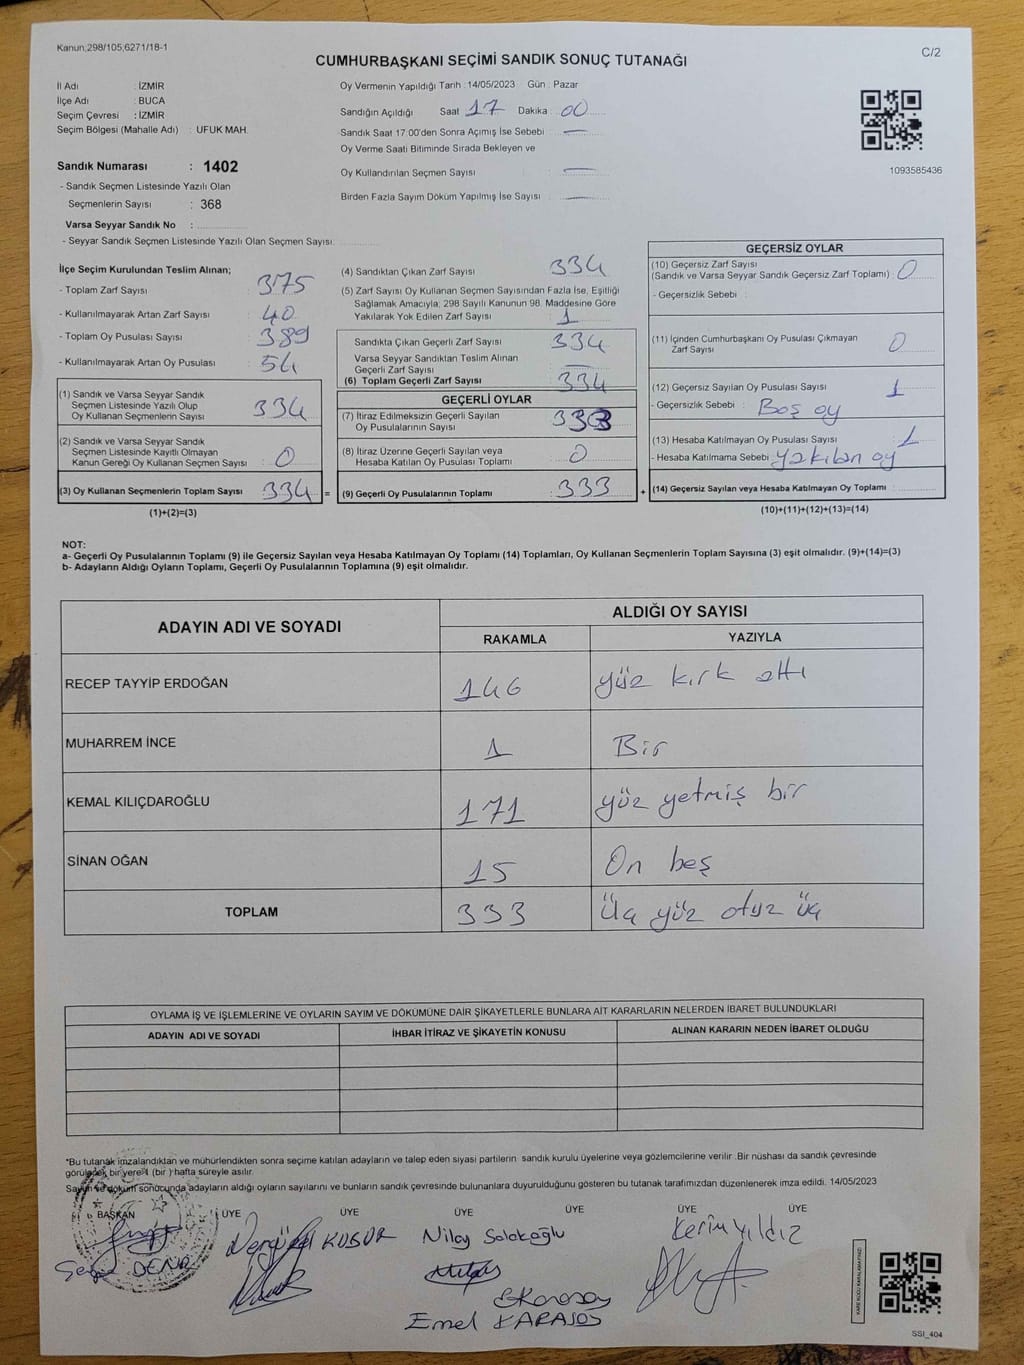 Kanun;298/105,6271/18-1
C/2
CUMHURBAŞKANI SEÇİMİ SANDIK SONUÇ TUTANAĞI
İl Adı : İZMİR
İlçe Adı : BUCA
Seçim Çevresi : İZMİR
Seçim Bölgesi (Mahalle Adı) : UFUK MAH.
Oy Vermenin Yapıldığı Tarih : 14/05/2023 Gün : Pazar
Sandığın Açıldığı Saat 17 Dakika 00
Sandık Saat 17:00'den Sonra Açımış İse Sebebi : —
Oy Verme Saati Bitiminde Sırada Bekleyen ve
Oy Kullandırılan Seçmen Sayısı : —
Birden Fazla Sayım Döküm Yapılmış İse Sayısı : —
1093585436
Sandık Numarası : 1402
- Sandık Seçmen Listesinde Yazılı Olan
Seçmenlerin Sayısı : 368
Varsa Seyyar Sandık No :
- Seyyar Sandık Seçmen Listesinde Yazılı Olan Seçmen Sayısı:
İlçe Seçim Kurulundan Teslim Alınan;
- Toplam Zarf Sayısı : 375
- Kullanılmayarak Artan Zarf Sayısı : 40
- Toplam Oy Pusulası Sayısı : 389
- Kullanılmayarak Artan Oy Pusulası : 54
(1) Sandık ve Varsa Seyyar Sandık
Seçmen Listesinde Yazılı Olup
Oy Kullanan Seçmenlerin Sayısı : 334
(2) Sandık ve Varsa Seyyar Sandık
Seçmen Listesinde Kayıtlı Olmayan
Kanun Gereği Oy Kullanan Seçmen Sayısı : 0
(3) Oy Kullanan Seçmenlerin Toplam Sayısı : 334 =
(1)+(2)=(3)
(4) Sandıktan Çıkan Zarf Sayısı : 334
(5) Zarf Sayısı Oy Kullanan Seçmen Sayısından Fazla İse, Eşitliği
Sağlamak Amacıyla; 298 Sayılı Kanunun 98. Maddesine Göre
Yakılarak Yok Edilen Zarf Sayısı : 1
Sandıkta Çıkan Geçerli Zarf Sayısı : 334
Varsa Seyyar Sandıktan Teslim Alınan
Geçerli Zarf Sayısı : —
(6) Toplam Geçerli Zarf Sayısı : 334
GEÇERLİ OYLAR
(7) İtiraz Edilmeksizin Geçerli Sayılan
Oy Pusulalarının Sayısı : 333
(8) İtiraz Üzerine Geçerli Sayılan veya
Hesaba Katılan Oy Pusulası Toplamı : 0
(9) Geçerli Oy Pusulalarının Toplamı : 333 +
GEÇERSİZ OYLAR
(10) Geçersiz Zarf Sayısı
(Sandık ve Varsa Seyyar Sandık Geçersiz Zarf Toplamı) : 0
- Geçersizlik Sebebi :
(11) İçinden Cumhurbaşkanı Oy Pusulası Çıkmayan
Zarf Sayısı : 0
(12) Geçersiz Sayılan Oy Pusulası Sayısı : 1
- Geçersizlik Sebebi : Boş oy
(13) Hesaba Katılmayan Oy Pusulası Sayısı : 1
- Hesaba Katılmama Sebebi : yakılan oy
(14) Geçersiz Sayılan veya Hesaba Katılmayan Oy Toplamı :
(10)+(11)+(12)+(13)=(14)
NOT:
a- Geçerli Oy Pusulalarının Toplamı (9) ile Geçersiz Sayılan veya Hesaba Katılmayan Oy Toplamı (14) Toplamları, Oy Kullanan Seçmenlerin Toplam Sayısına (3) eşit olmalıdır. (9)+(14)=(3)
b- Adayların Aldığı Oyların Toplamı, Geçerli Oy Pusulalarının Toplamına (9) eşit olmalıdır.
ADAYIN ADI VE SOYADI ALDIĞI OY SAYISI
RAKAMLA YAZIYLA
RECEP TAYYİP ERDOĞAN 146 yüz kırk altı
MUHARREM İNCE 1 Bir
KEMAL KILIÇDAROĞLU 171 yüz yetmiş bir
SİNAN OĞAN 15 On beş
TOPLAM 333 Üç yüz otuz üç
OYLAMA İŞ VE İŞLEMLERİNE VE OYLARIN SAYIM VE DÖKÜMÜNE DAİR ŞİKAYETLERLE BUNLARA AİT KARARLARIN NELERDEN İBARET BULUNDUKLARI
ADAYIN ADI VE SOYADI İHBAR İTİRAZ VE ŞİKAYETİN KONUSU ALINAN KARARIN NEDEN İBARET OLDUĞU
*Bu tutanak imzalandıktan ve mühürlendikten sonra seçime katılan adayların ve talep eden siyasi partilerin sandık kurulu üyelerine veya gözlemcilerine verilir. Bir nüshası da sandık çevresinde
görülecek bir yere 1 (bir ) hafta süreyle asılır.
Sayım ve döküm sonucunda adayların aldığı oyların sayılarını ve bunların sandık çevresinde bulunanlara duyurulduğunu gösteren bu tutanak tarafımızdan düzenlenerek imza edildi. 14/05/2023
BAŞKAN ÜYE ÜYE ÜYE ÜYE ÜYE ÜYE
KUSUR Nilay Solakoğlu Kerim Yıldız
EKarasoy
Emel KARASOY
SSI_404